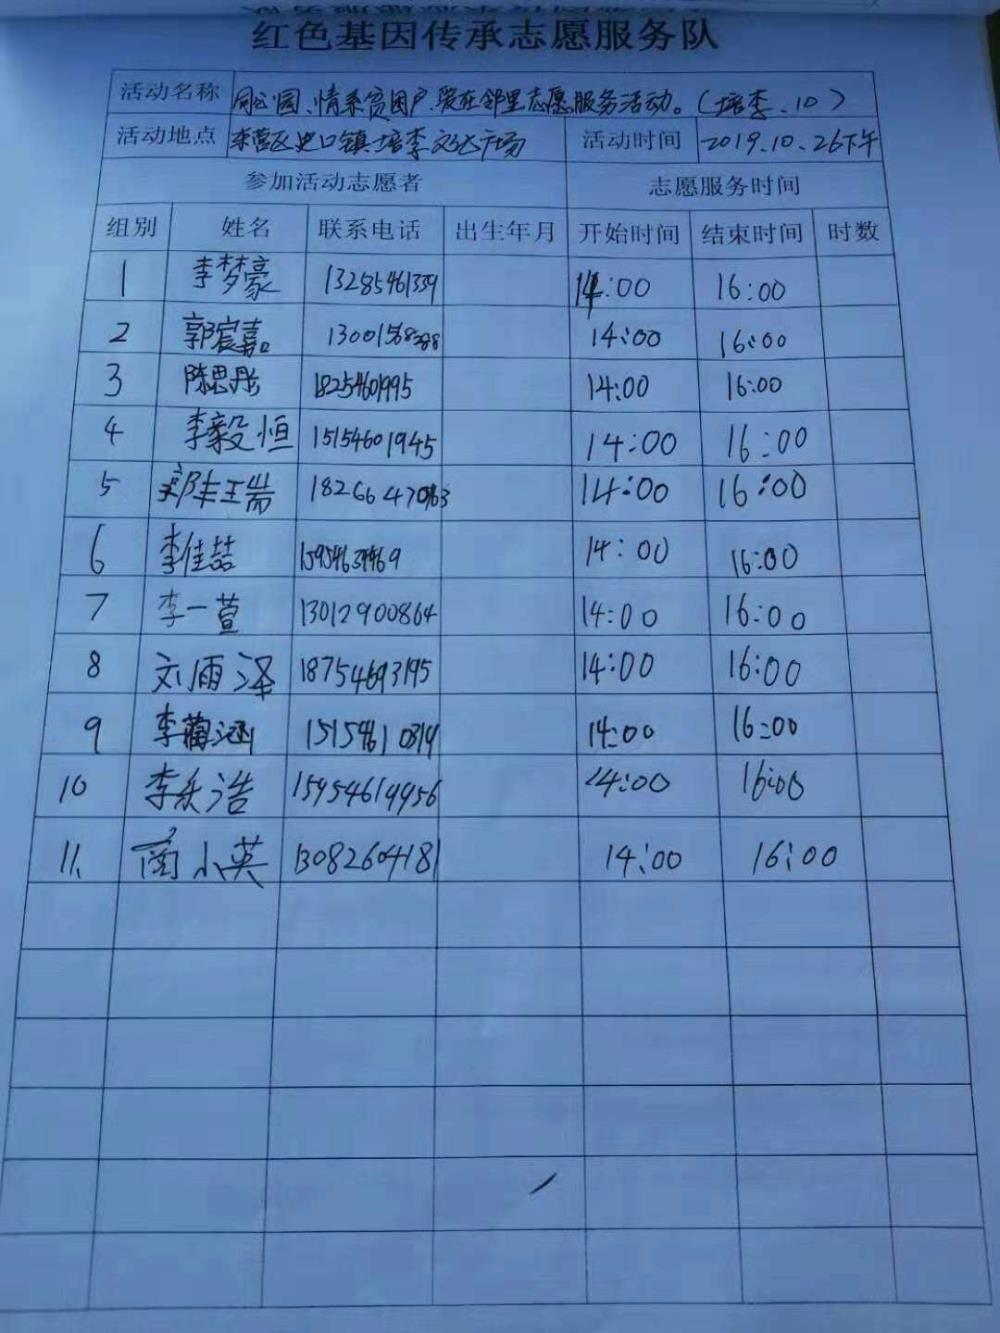 红色基因传承志愿服务队
活动名称 同心园、情系贫困户、爱在邻里志愿服务活动。(培李.10)
活动地点 东营区史口镇培李文化广场 活动时间 2019.10.26下午
参加活动志愿者 志愿服务时间
组别 姓名 联系电话 出生年月 开始时间 结束时间 时数
1 李梦豪 13285461339 14:00 16:00
2 郭宸嘉 14:00 16:00
3 陈思彤 18254601995 14:00 16:00
4 李毅恒 15154601945 14:00 16:00
5 14:00 16:00
6 李佳喆 14:00 16:00
7 李一萱 13012900864 14:00 16:00
8 刘雨泽 18754693195 14:00 16:00
9 涵 14:00 16:00
10 李 浩 15954619956 14:00 16:00
11、 小英 13082604181 14:00 16:00